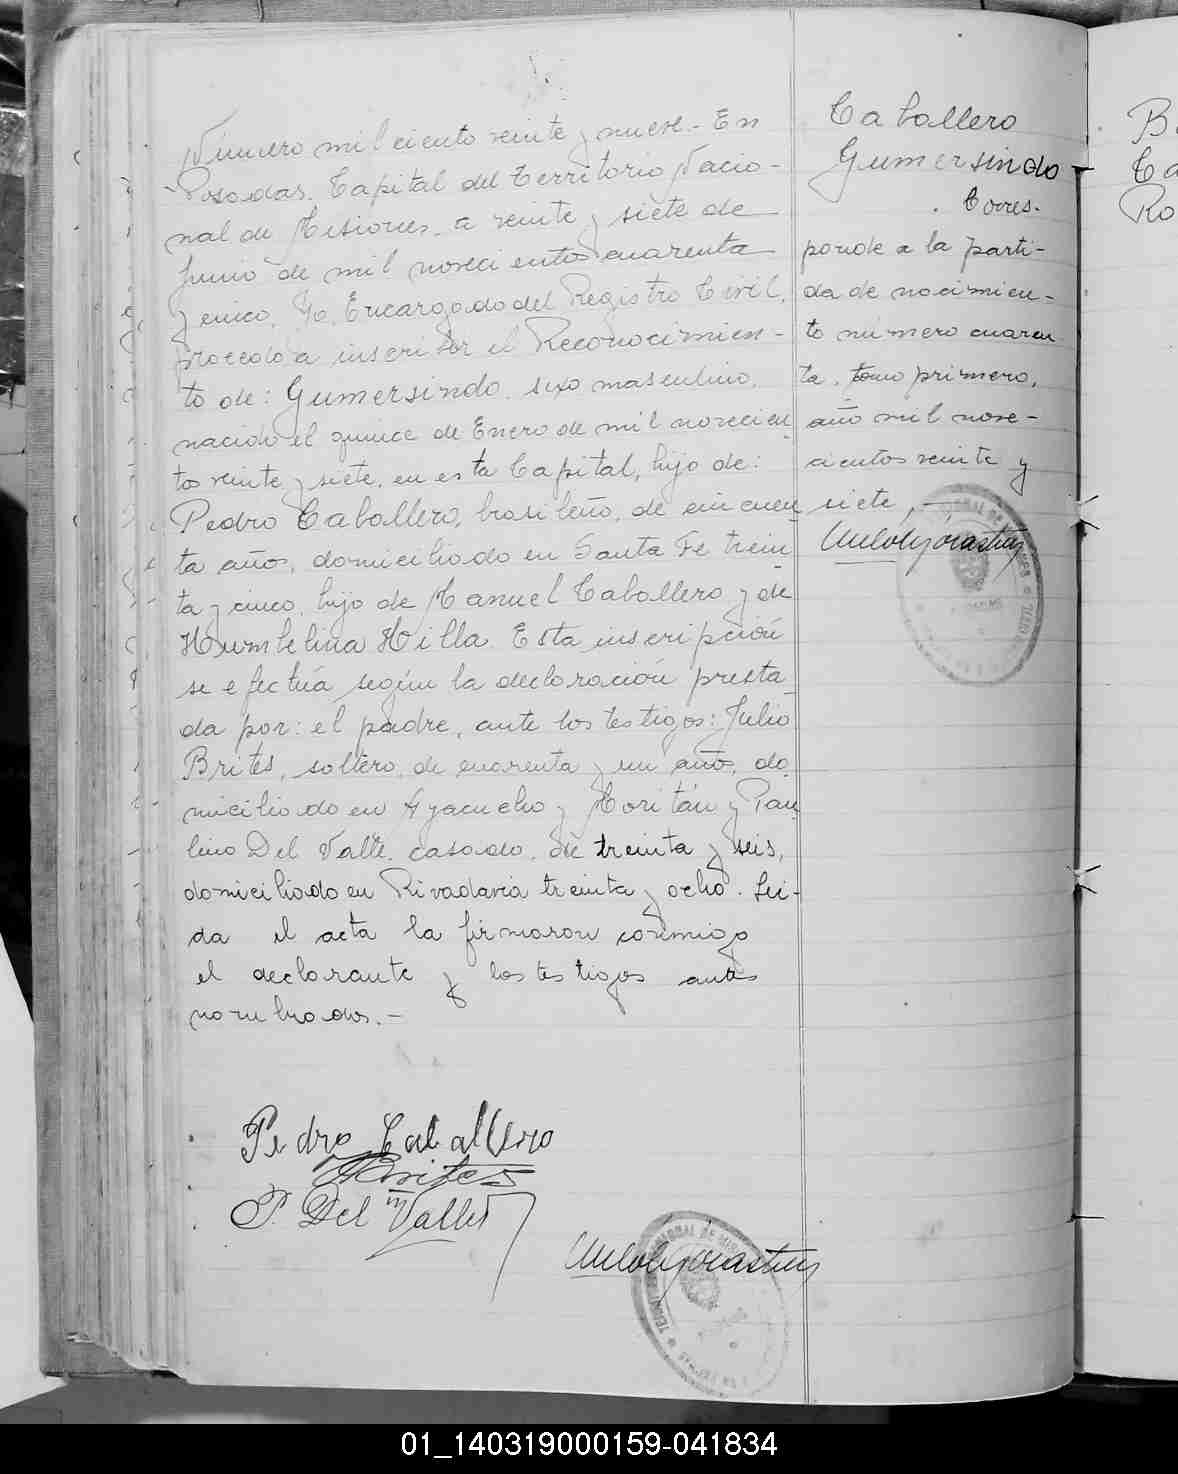 Número mil ciento veinte y nueve.- En
Posadas, Capital del Territorio Nacio-
nal de Misiones, a veinte y siete de
Junio de mil novecientos cuarenta
y cinco, Yo, Encargado del Registro Civil,
procedo a inscribir el Reconocimien-
to de: Gumersindo, sexo masculino,
nacido el quince de Enero de mil novecien
tos veinte y siete, en esta Capital, hijo de:
Pedro Caballero, brasileño, de cincuen
ta años, domiciliado en Santa Fe trein
ta y cinco, hijo de Manuel Caballero y de
Humbelina Hilla. Esta inscripción
se efectúa según la declaración presta
da por: el padre, ante los testigos: Julio
Brites, soltero, de cuarenta y un años, do
miciliado en Ayacucho y Moritán y Pau
lino Del Valle, casado, de treinta y seis,
domiciliado en Rivadavia treinta y ocho. Leí-
da el acta la firmaron conmigo
el declarante y los testigos antes
nombrados.-
Pedro Caballero
Brites
P. Del Valle
Caballero
Gumersindo
Corres-
ponde a la parti-
da de nacimien-
to número cuaren
ta, tomo primero,
año mil nove-
cientos veinte y
siete,-
B
Ca
Ro
01_140319000159-041834